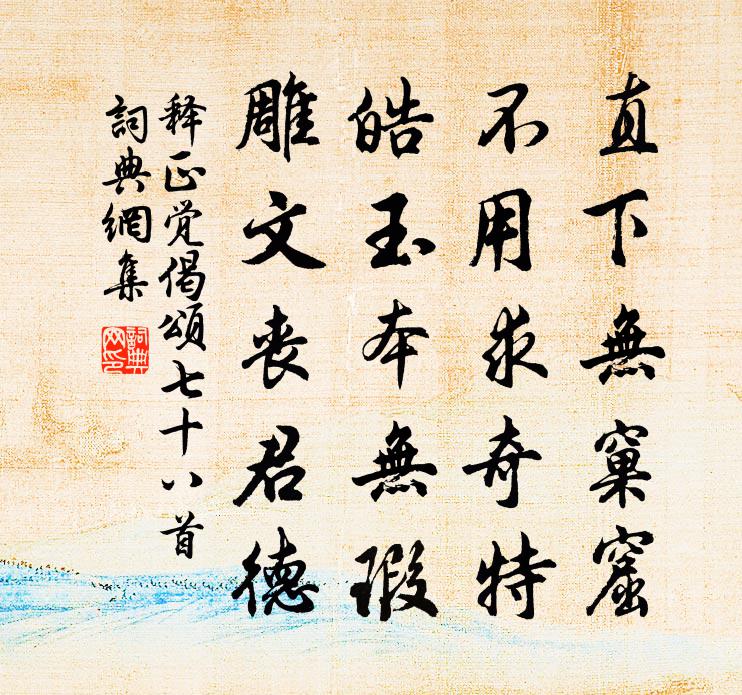 直下無窠窟
不用求奇特
皓玉本無瑕
雕文丧君德
释正觉偈頌七十八首
詞典網集
詞典網印